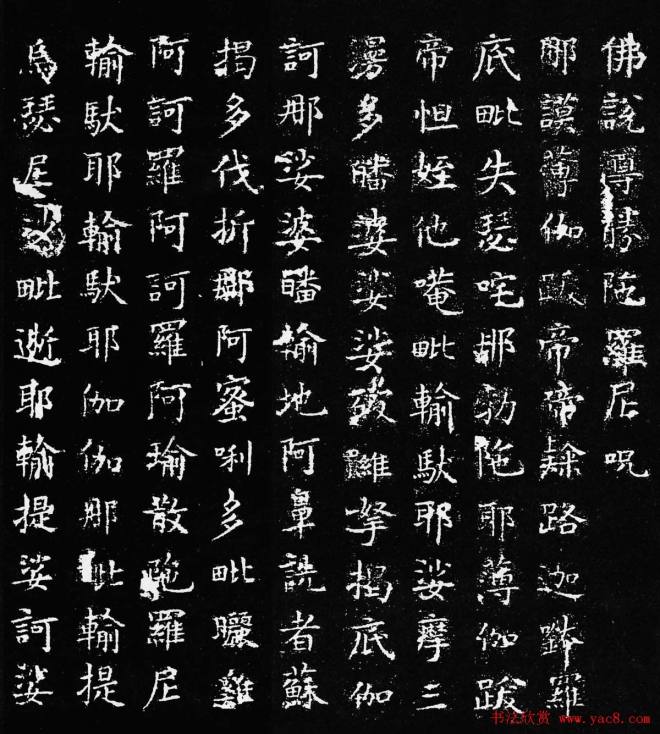 佛說尊勝陁羅尼呪
那謨薄伽跋帝帝隸路迦鉢羅
底毗失瑟咤耶勃陁耶薄伽跋
帝怛姪他唵毗輸馱耶娑摩三
多皤婆娑娑拏揭底伽
訶那娑婆皤輸地阿鼻詵者蘇
揭多伐折那阿蜜唎多毗曬雞
阿訶羅阿訶羅阿瑜散陁羅尼
輸馱耶輸馱耶伽伽那毗輸提
烏瑟尼沙毗逝耶輸提娑訶娑
书法欣赏 www.yac8.com